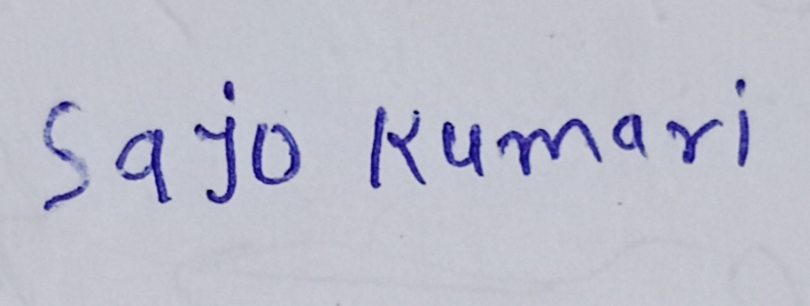 Sajo Kumari